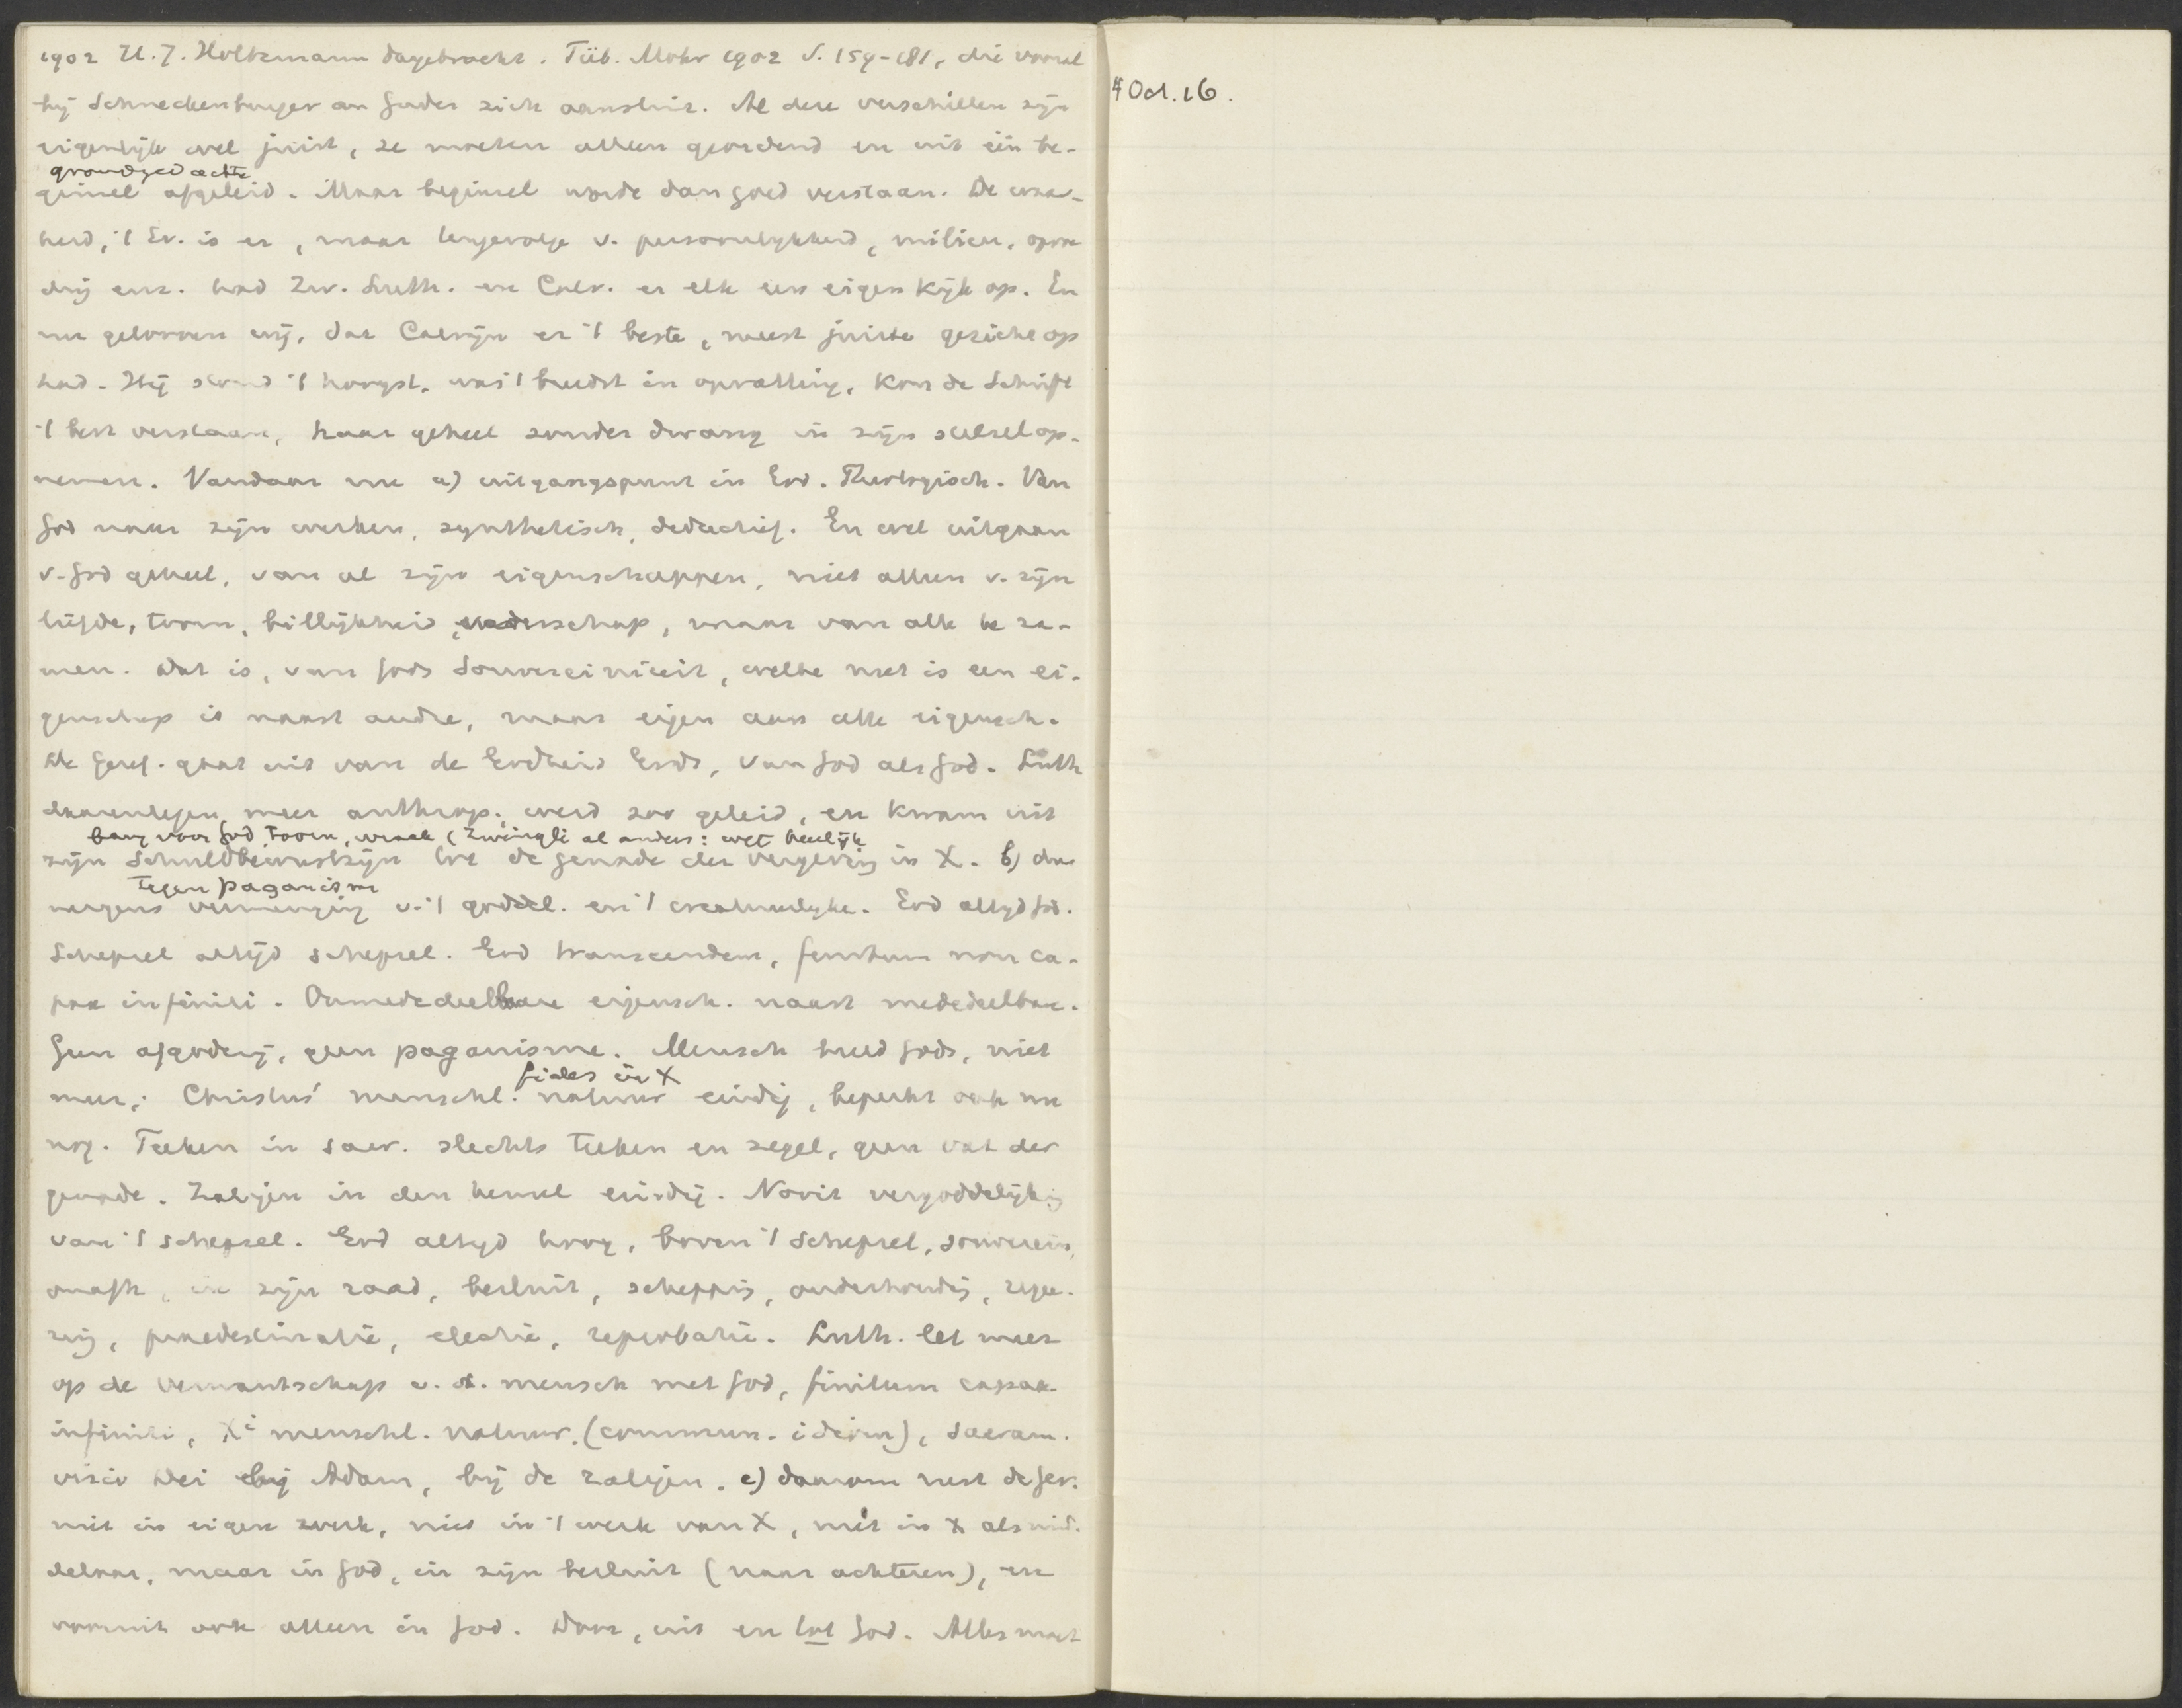 1902 H. J. Holtzmann dargebracht. Tüb. Mohr 1902 S. 159-181, die vooral
bij Schneckenburger en Guder zich aansluit. Al deze verschillen zijn
eigenlijk wel juist, ze moeten alleen geordend en uit één be-
grondgedachte
ginsel afgeleid. Maar beginsel worde dan goed verstaan. De waar-
heid, 't Ev. is er, maar tengevolge v. persoonlijkheid, milieu, opvoe
ding enz. had Zw. Luth. en Calv. er elk een eigen kijk op. En
nu gelooven wij, dat Calvijn er 't beste, meest juiste gezicht op
had. Hij stond 't hoogst, was 't breedst in opvatting, kon de Schrift
't best verstaan, haar geheel zonder dwang in zijn stelsel op-
nemen. Vandaar nu a) uitgangspunt in God. Theologisch. Van
God naar zijn werken, synthetisch, deductief. En wel uitgaan
v. God geheel, van al zijn eigenschappen, niet alleen v. zijn
liefde, toorn, billijkheid, vaderschap, maar van alle te za-
men. Dat is, van Gods Souvereiniteit, welke niet is een ei-
genschap is naast andre, maar eigen aan alle eigensch.
De Geref. gaat uit van de Godheid Gods, van God als God. Luth
daarentegen meer anthrop., werd zoo geleid, en kwam uit
bang voor God, toorn, wraak (Zwingli al anders: wet heerlijk
zijn Schuldbewustzijn tot de genade der vergeving in X. b) dus
tegen paganisme
nergens vermenging v. 't goddel. en 't creatuurlijke. God altijd God.
Schepsel altijd schepsel. God transcendent, finitum non ca-
pax infiniti. Onmededeelbare eigensch. naast mededeelbare.
Geen afgoderij, geen paganisme. Mensch beeld Gods, niet
fides in X
meer; Christus' menschl. natuur eindig, beperkt ook nu
nog. Teeken in sacr. slechts teeken en zegel, geen vat der
genade. Zaligen in den hemel eindig. Nooit vergoddelijking
van 't schepsel. God altijd hoog, boven 't schepsel, souverein,
onafh, in zijn raad, besluit, schepping, onderhouding, regee-
ring, praedestinatie, electie, reprobatie. Luth. let meer
op de verwantschap v. d. mensch met God, finitum capax
infiniti, Xi menschl. natuur. (commun. idiom), sacram.
visio Dei bij Adam, bij de zaligen. c) daarom rust de Ger.
niet in eigen werk, niet in 't werk van X, niet in X als mid-
delaar, maar in God, in zijn besluit (naar achteren), en
vooruit ook alleen in God. Door, uit en tot God. Alles moet
4 Oct. 16.